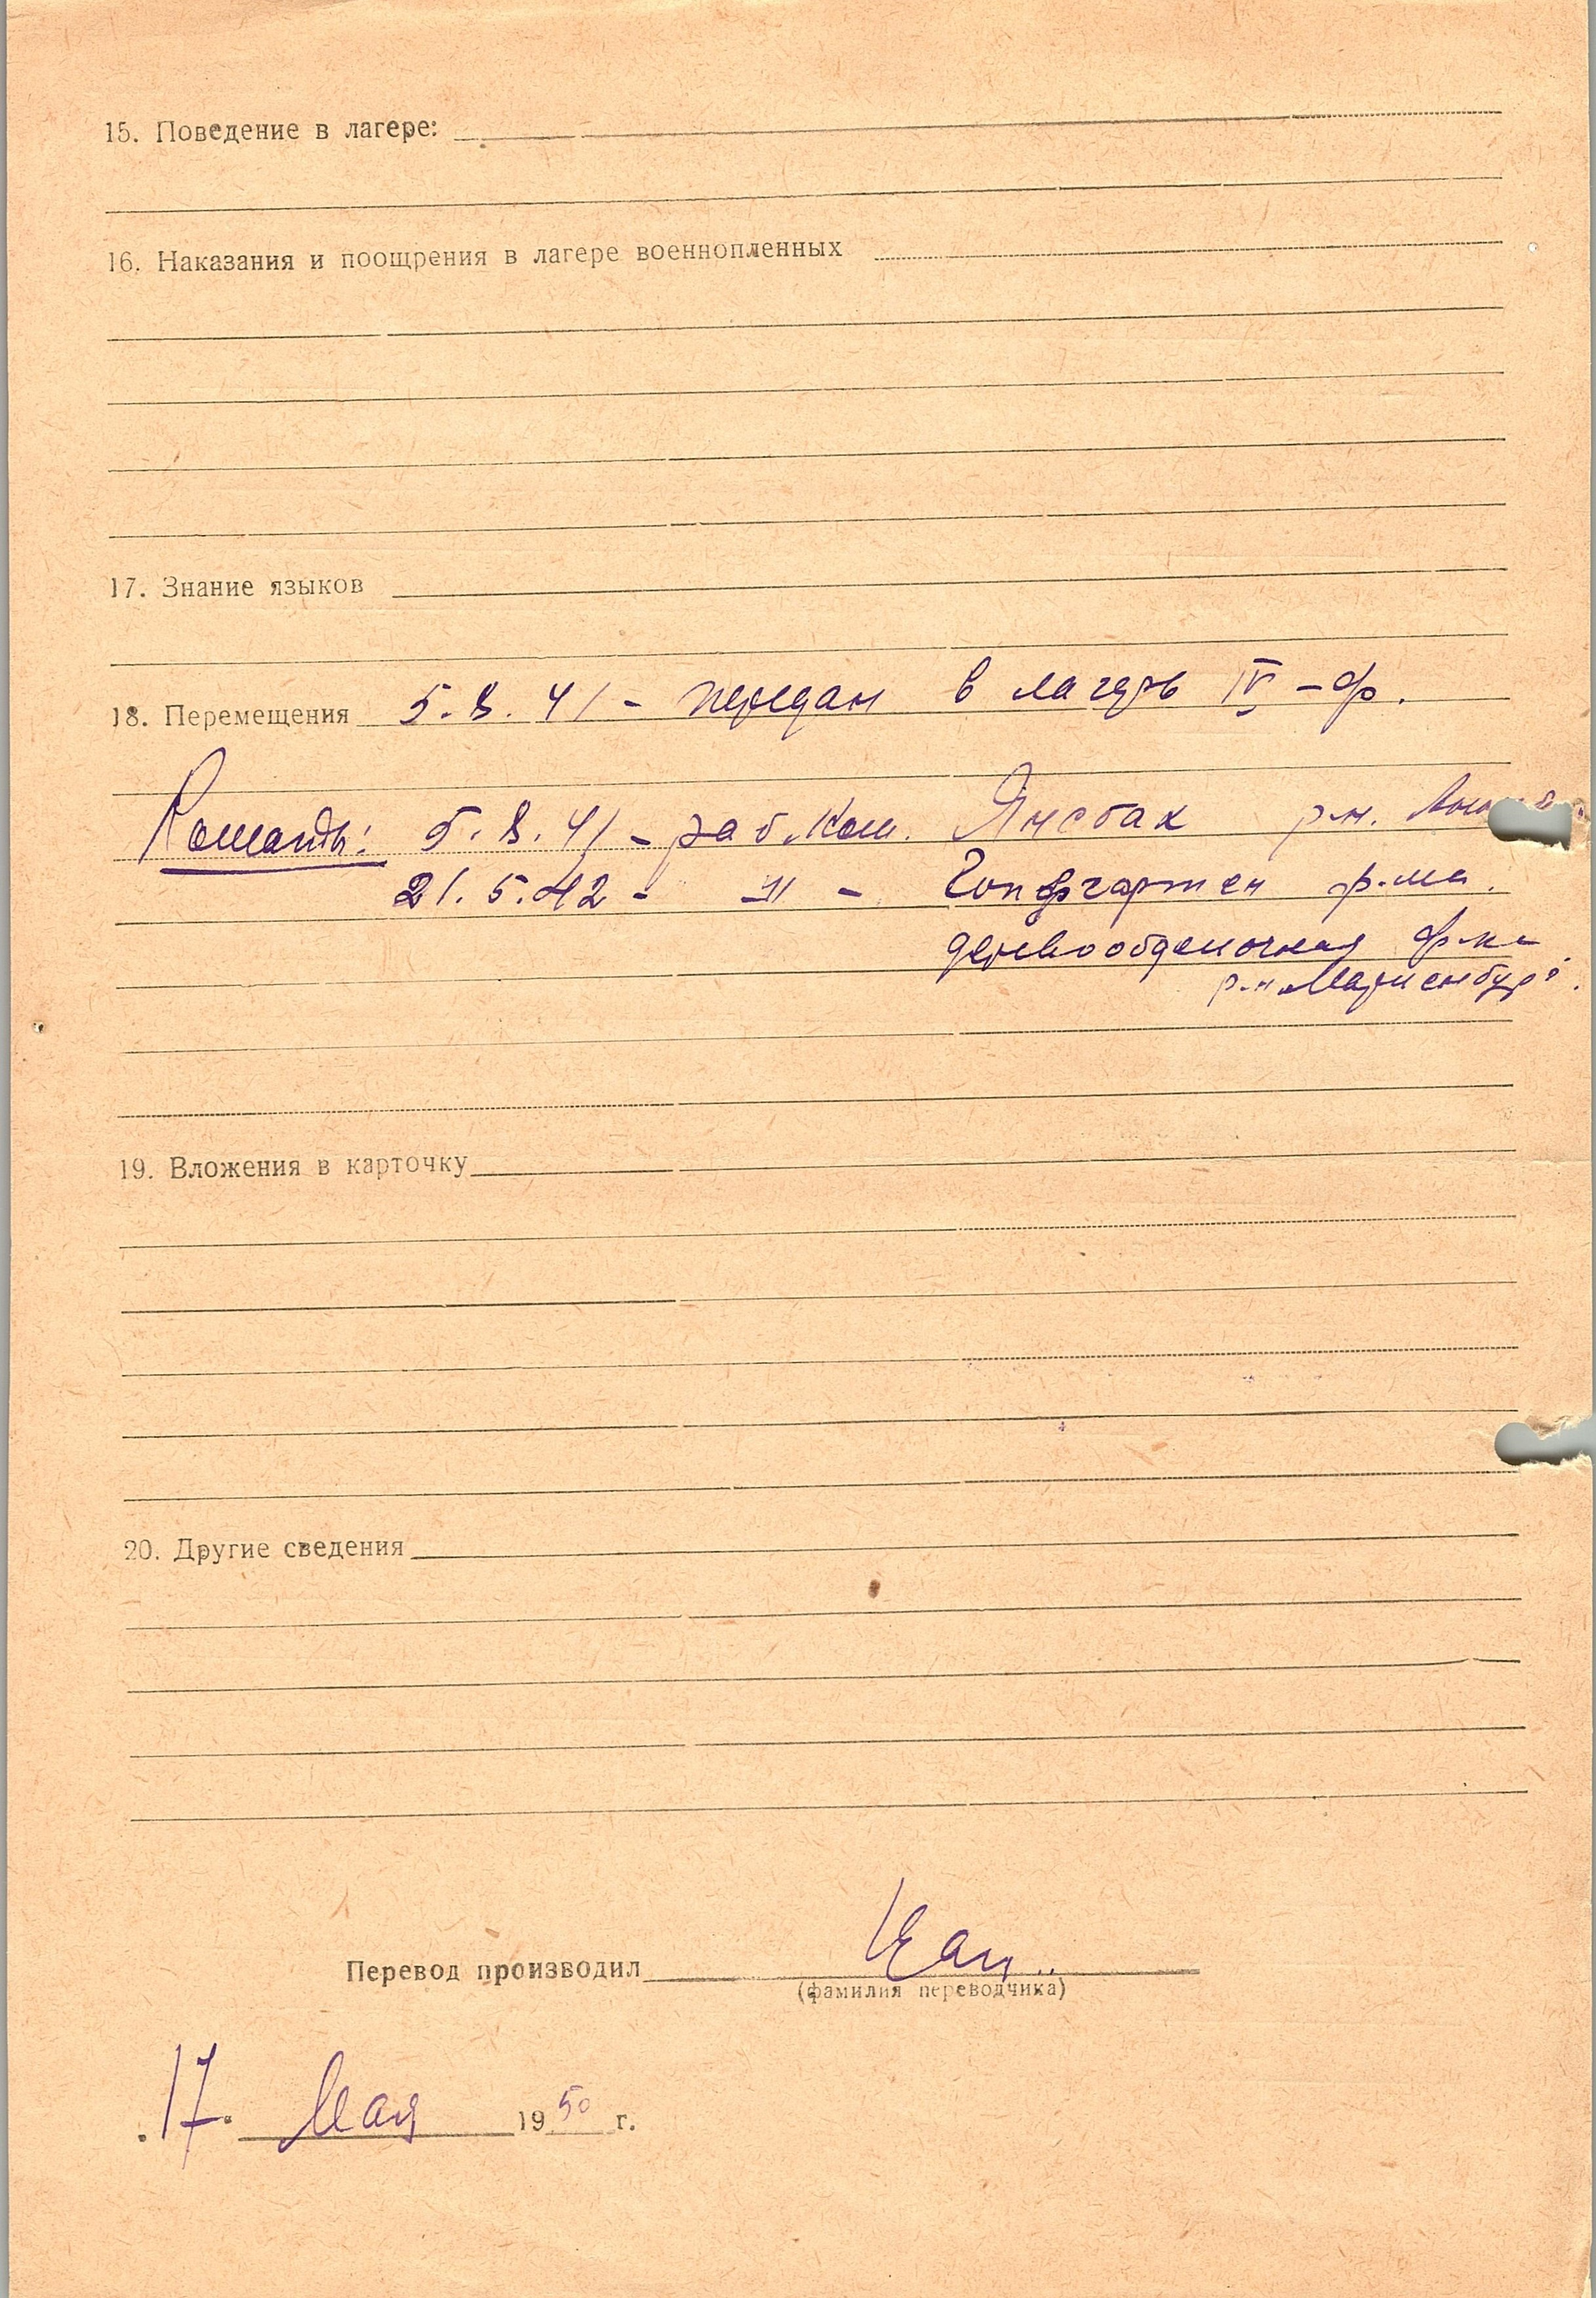 15. Поведение в лагере:
16. Наказания и поощрения в лагере военнопленных
17. Знание языков
18. Перемещения 5.8.41 - передан в лагерь IV-ф.
Команды: 5.8.41 - раб. ком. Янсбах р-н.
21.5.42 - -"- - Гопфгартен ф-ма.
деревообделочная ф-ка
р-н Мариенбург.
19. Вложения в карточку
20. Другие сведения
Перевод производил
(фамилия переводчика)
"17" Мая 1950 г.